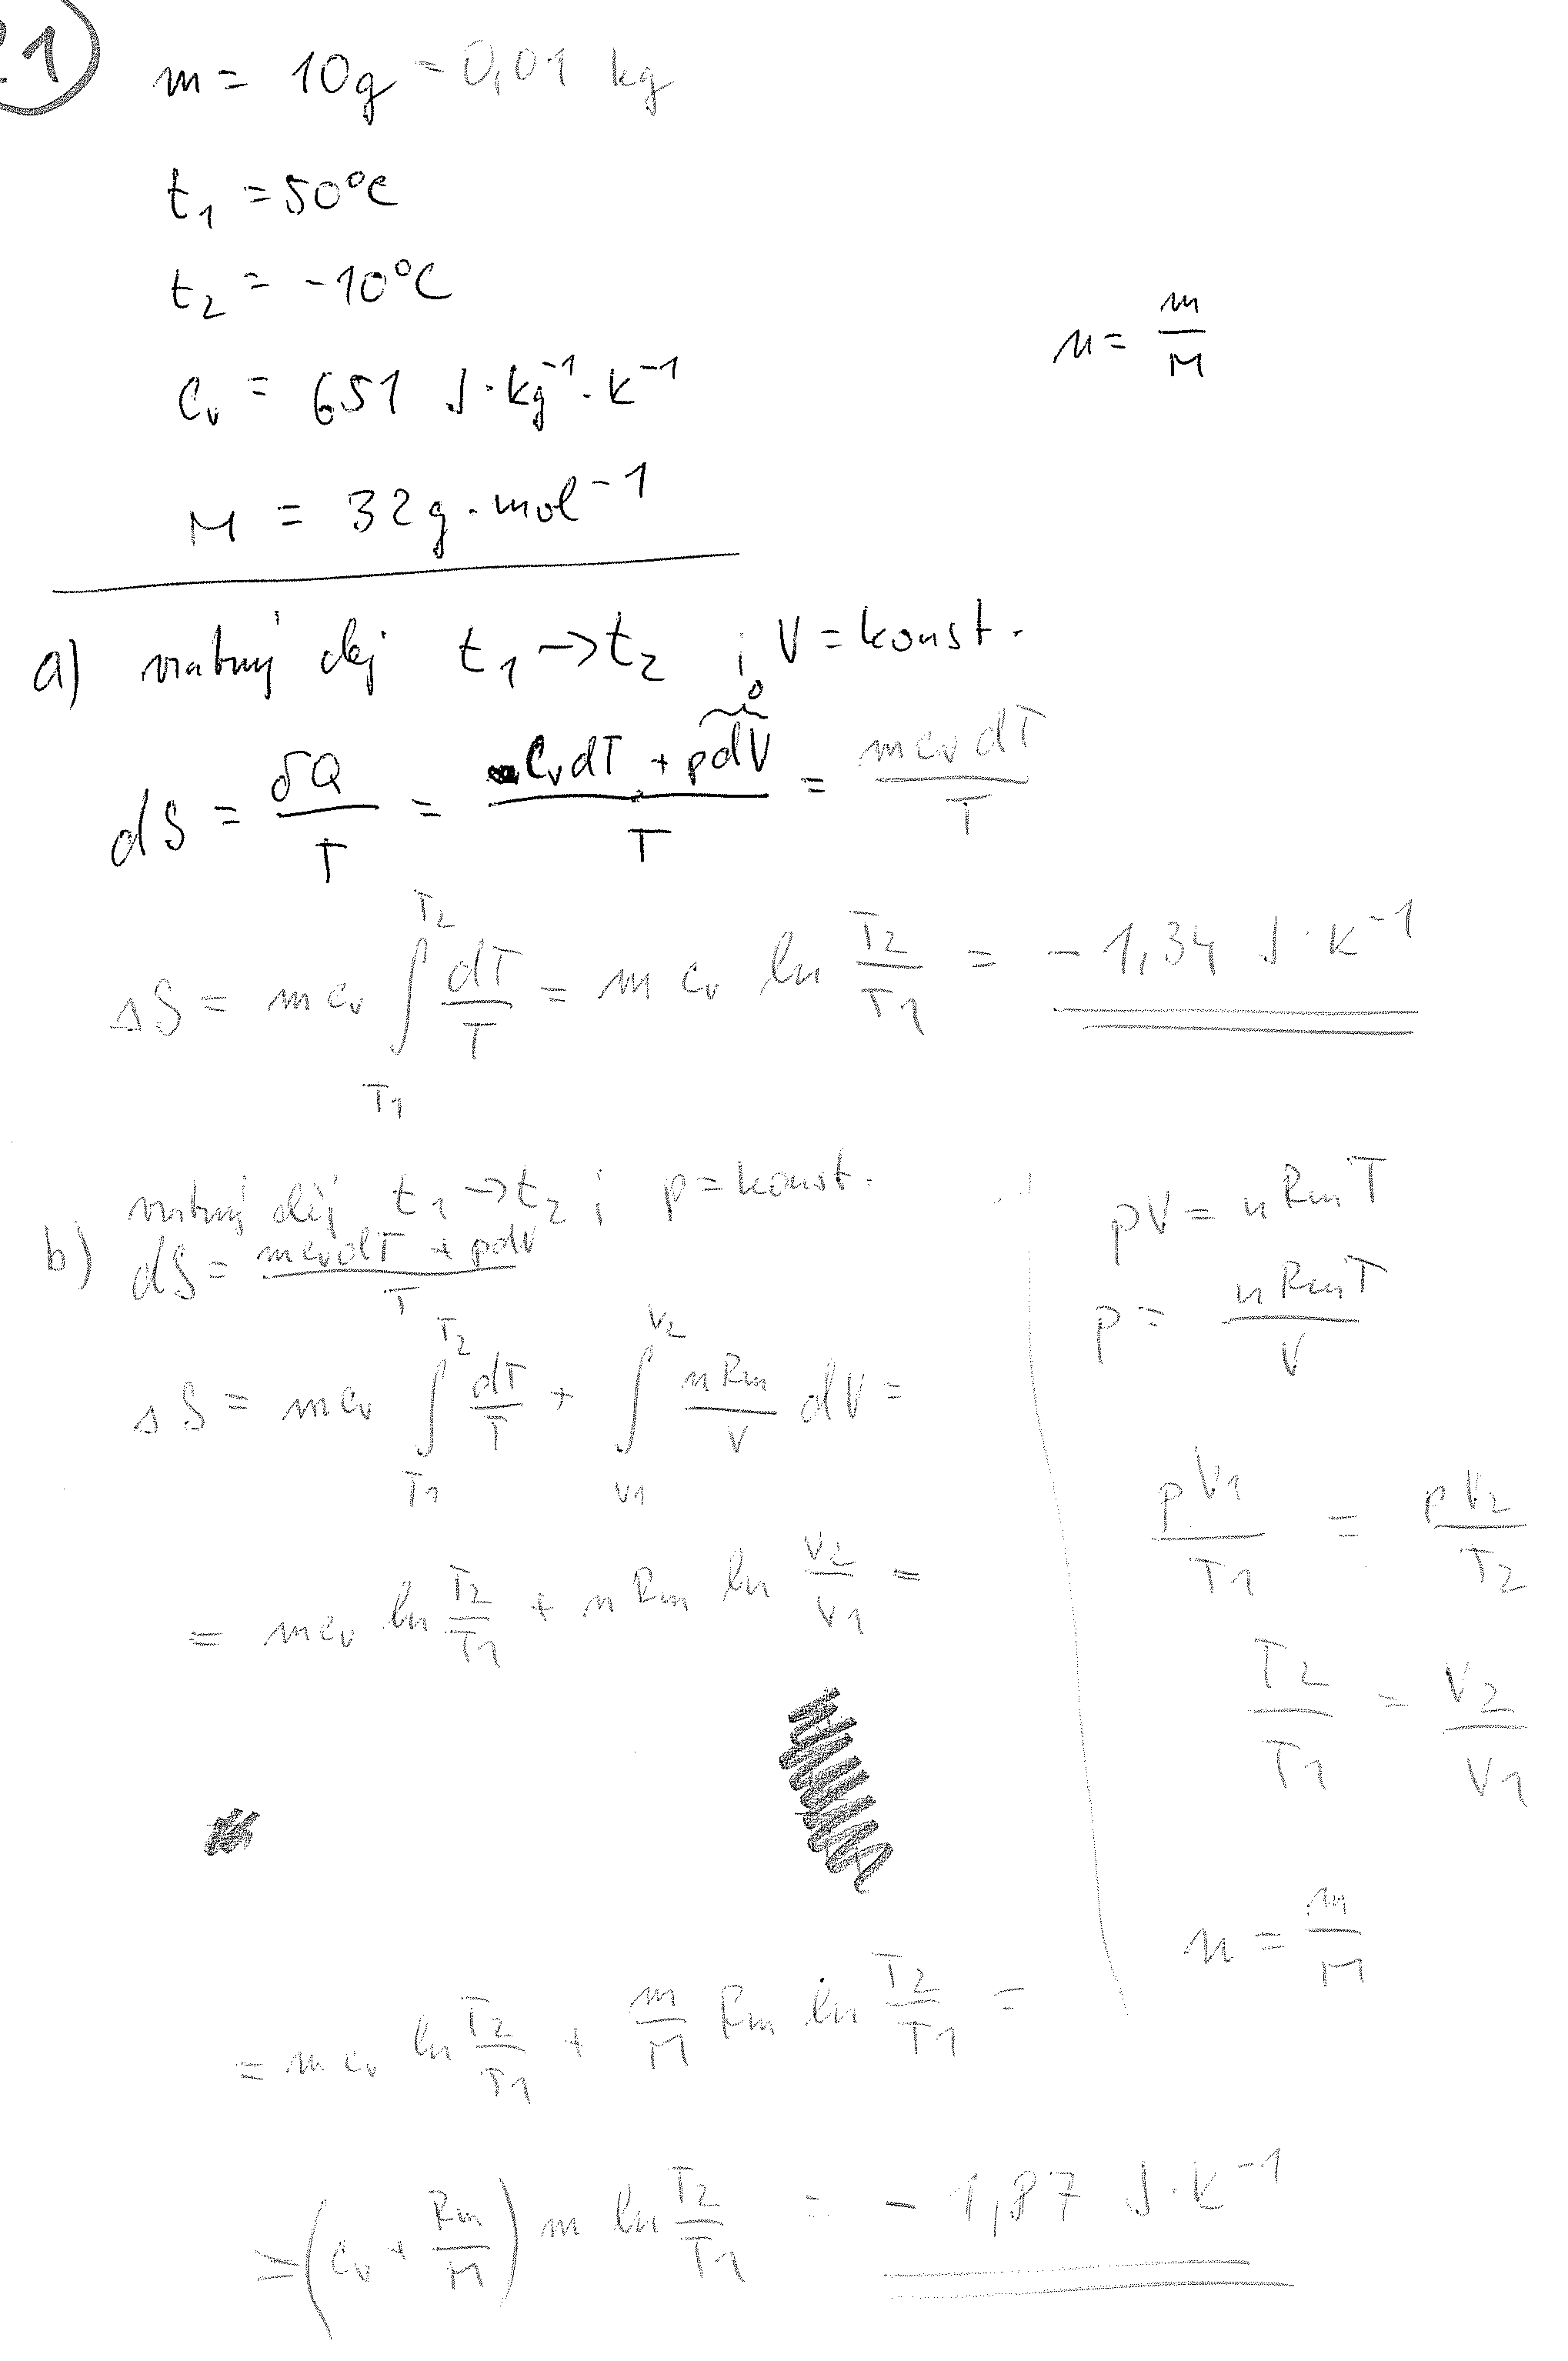 21
m = 10g = 0,01 kg
t₁ = 50°C
t₂ = -10°C
n = m/M
c_v = 651 J·kg⁻¹·K⁻¹
M = 32g·mol⁻¹
a) vratný děj t₁ → t₂ ; V = konst.
0
dS = δQ/T = (c_v dT + pdV)/T = m c_v dT/T
ΔS = m c_v ∫_{T₁}^{T₂} dT/T = m c_v ln T₂/T₁ = -1,34 J·K⁻¹
vratný děj t₁ → t₂ ; p = konst.
b) dS = (m c_v dT + pdV)/T
ΔS = m c_v ∫_{T₁}^{T₂} dT/T + ∫_{V₁}^{V₂} nRm/V dV =
= m c_v ln T₂/T₁ + n Rm ln V₂/V₁ =
= m c_v ln T₂/T₁ + m/M Rm ln T₂/T₁ =
= (c_v + Rm/M) m ln T₂/T₁ = -1,87 J·K⁻¹
pV = nRmT
p = nRmT/V
pV₁/T₁ = pV₂/T₂
T₂/T₁ = V₂/V₁
n = m/M